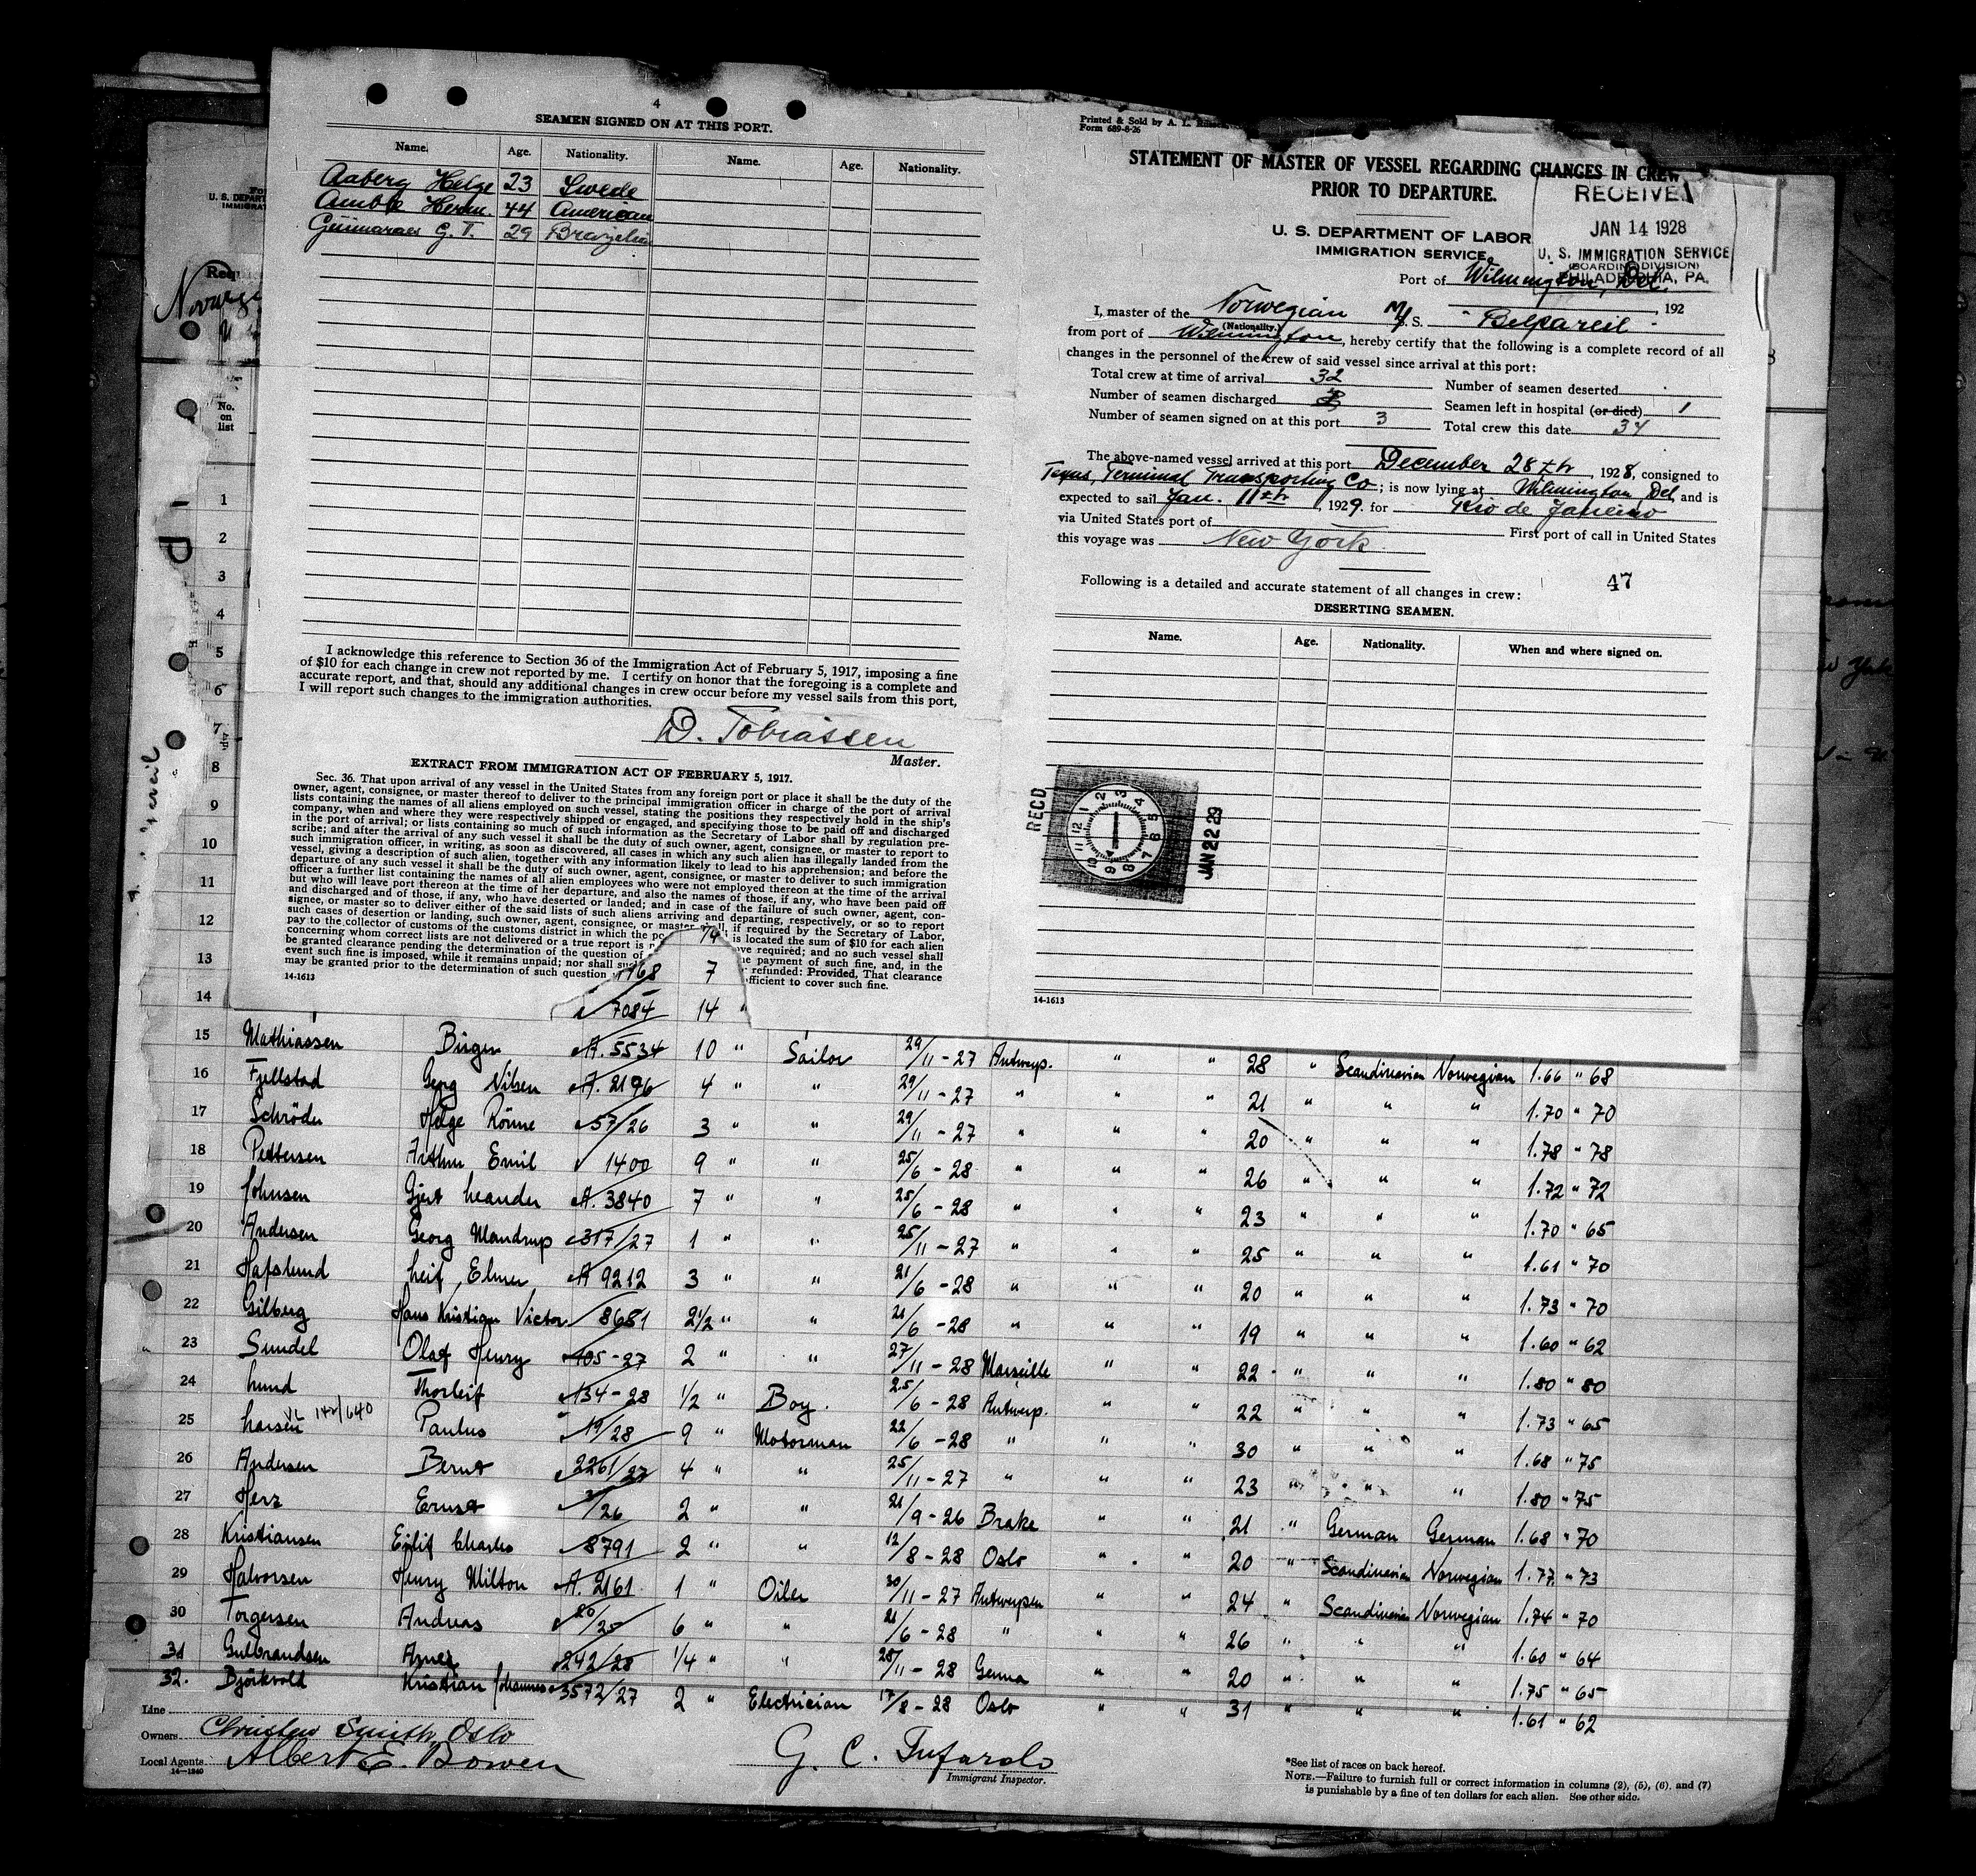 4
SEAMEN SIGNED ON AT THIS PORT.
Name. Age. Nationality. Name. Age. Nationality.
Aaberg Helge 23 Swede
Amble Herm. 44 American
Guimaraes G. T. 29 Brazilian
I acknowledge this reference to Section 36 of the Immigration Act of February 5, 1917, imposing a fine
of $10 for each change in crew not reported by me. I certify on honor that the foregoing is a complete and
accurate report, and that, should any additional changes in crew occur before my vessel sails from this port,
I will report such changes to the immigration authorities.
D. Tobiassen
Master.
EXTRACT FROM IMMIGRATION ACT OF FEBRUARY 5, 1917.
Sec. 36. That upon arrival of any vessel in the United States from any foreign port or place it shall be the duty of the
owner, agent, consignee, or master thereof to deliver to the principal immigration officer in charge of the port of arrival
lists containing the names of all aliens employed on such vessel, stating the positions they respectively hold in the ship's
company, when and where they were respectively shipped or engaged, and specifying those to be paid off and discharged
in the port of arrival; or lists containing so much of such information as the Secretary of Labor shall by regulation pre-
scribe; and after the arrival of any such vessel it shall be the duty of such owner, agent, consignee, or master to report to
such immigration officer, in writing, as soon as discovered, all cases in which any such alien has illegally landed from the
vessel, giving a description of such alien, together with any information likely to lead to his apprehension; and before the
departure of any such vessel it shall be the duty of such owner, agent, consignee, or master to deliver to such immigration
officer a further list containing the names of all alien employees who were not employed thereon at the time of the arrival
but who will leave port thereon at the time of her departure, and also the names of those, if any, who have been paid off
and discharged and of those, if any, who have deserted or landed; and in case of the failure of such owner, agent, con-
signee, or master so to deliver either of the said lists of such aliens arriving and departing, respectively, or so to report
such cases of desertion or landing, such owner, agent, consignee, or master shall, if required by the Secretary of Labor,
pay to the collector of customs of the customs district in which the po is located the sum of $10 for each alien
concerning whom correct lists are not delivered or a true report is n ove required; and no such vessel shall
be granted clearance pending the determination of the question of e payment of such fine, and, in the
event such fine is imposed, while it remains unpaid; nor shall su refunded: Provided, That clearance
may be granted prior to the determination of such question fficient to cover such fine.
14-1613
Printed & Sold by A. L.
Form 689-8-26
STATEMENT OF MASTER OF VESSEL REGARDING CHANGES IN CREW
PRIOR TO DEPARTURE.
U. S. DEPARTMENT OF LABOR
IMMIGRATION SERVICE
RECEIVE
JAN 14 1928
U. S. IMMIGRATION SERVICE
(BOARDING DIVISION)
PHILADELPHIA, PA.
Port of Wilmington, Del.
, 192
I, master of the Norwegian M/S. S. "Belpareil"
(Nationality.)
from port of Wilmington, hereby certify that the following is a complete record of all
changes in the personnel of the crew of said vessel since arrival at this port:
Total crew at time of arrival 32 Number of seamen deserted
Number of seamen discharged Seamen left in hospital (or died) 1
Number of seamen signed on at this port 3 Total crew this date 34
The above-named vessel arrived at this port December 28th, 1928, consigned to
Texas Terminal Transporting Co; is now lying at Wilmington Del and is
expected to sail Jan. 11th, 1929. for Rio de Janeiro
via United States port of First port of call in United States
this voyage was New York
47
Following is a detailed and accurate statement of all changes in crew:
DESERTING SEAMEN.
Name. Age. Nationality. When and where signed on.
RECD JAN 22 29
14-1613
U. S. DEPART
IMMIGRAT
No. on list
1
2
3
4
5
6
7
8
9
10
11
12
13 1168 7
14 7084 14 "
15 Mathiassen Birger A. 5534 10 " Sailor 29/11-27 Antwerp. " " 28 " Scandinavian Norwegian 1.66 " 68
16 Fjellstad Georg Nilsen A. 2196 4 " " 29/11-27 " " " 21 " " " 1.70 " 70
17 Schröder Helge Rönne 57/26 3 " " 29/11-27 " " " 20 " " " 1.78 " 78
18 Pettersen Arthur Emil 1400 9 " " 25/6-28 " " " 26 " " " 1.72 " 72
19 Johnsen Gjert Leander A. 3840 7 " " 25/6-28 " " " 23 " " " 1.70 " 65
20 Andersen Georg Mandrup 317/27 1 " " 25/11-27 " " " 25 " " " 1.61 " 70
21 Hafslund Leif Elmer A 9212 3 " " 21/6-28 " " " 20 " " " 1.73 " 70
22 Gilberg Hans Kristian Victor 8681 2½ " " 21/6-28 " " " 19 " " " 1.60 " 62
23 Sundel Olaf Henry 105-27 2 " " 27/11-28 Marseille " " 22 " " " 1.80 " 80
24 Lund Thorleif 134-28 1/2 " Boy. 25/6-28 Antwerp. " " 22 " " " 1.73 " 65
25 Larsen Paulus 19/28 9 " Motorman 22/6-28 " " " 30 " " " 1.68 " 75
26 Andersen Bernt 2261/27 4 " " 25/11-27 " " " 23 " " " 1.80 " 75
27 Herz Ernst /26 2 " " 21/9-26 Brake " " 21 " German German 1.68 " 70
28 Kristiansen Eilif Charles 8791 2 " " 12/8-28 Oslo " " 20 " Scandinavian Norwegian 1.77 " 73
29 Halvorsen Henry Milton A. 2161 1 " Oiler 30/11-27 Antwerpen " " 24 " Scandinavian Norwegian 1.74 " 70
30 Torgersen Andreas 20/25 6 " " 21/6-28 " " " 26 " " " 1.60 " 64
31 Gulbrandsen Arne 242/28 1/4 " " 28/11-28 Genua " " 20 " " " 1.75 " 65
32. Björkvold Kristian Johannes 3572/27 2 " Electrician 17/8-28 Oslo " " 31 " " " 1.61 " 62
Line
Owners Christen Smith, Oslo
Local Agents Albert E. Bowen
14-1240
G. C. Tufarolo
Immigrant Inspector.
*See list of races on back hereof.
NOTE.—Failure to furnish full or correct information in columns (2), (5), (6), and (7)
is punishable by a fine of ten dollars for each alien. See other side.